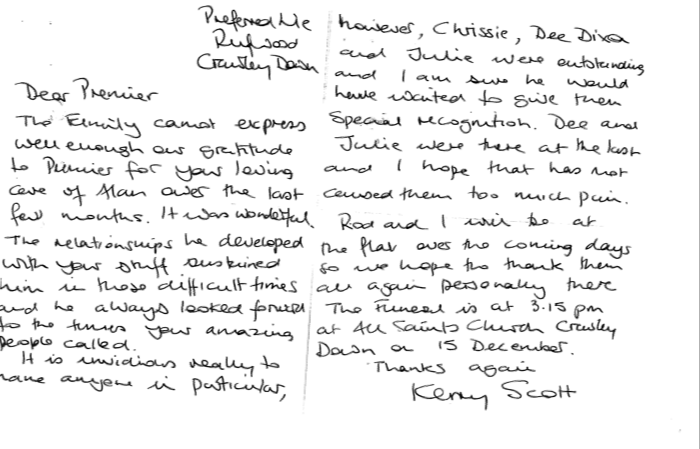 Preferred Me
Rufwood
Crawley Down
Dear Premier
The Family cannot express
well enough our gratitude
to Premier for your loving
care of Alan over the last
few months. It was wonderful.
The relationships he developed
with your staff sustained
him in those difficult times
and he always looked forward
to the times your amazing
people called.
It is invidious really to
name anyone in particular,
however, Chrissie, Dee Dixa
and Julie were outstanding
and I am sure he would
have wanted to give them
Special recognition. Dee and
Julie were there at the last
and I hope that has not
caused them too much pain.
Rod and I will be at
the flat over the coming days
so we hope to thank them
all again personally there
The Funeral is at 3.15 pm
at All Saints Church Crawley
Down on 15 December.
Thanks again
Kerry Scott